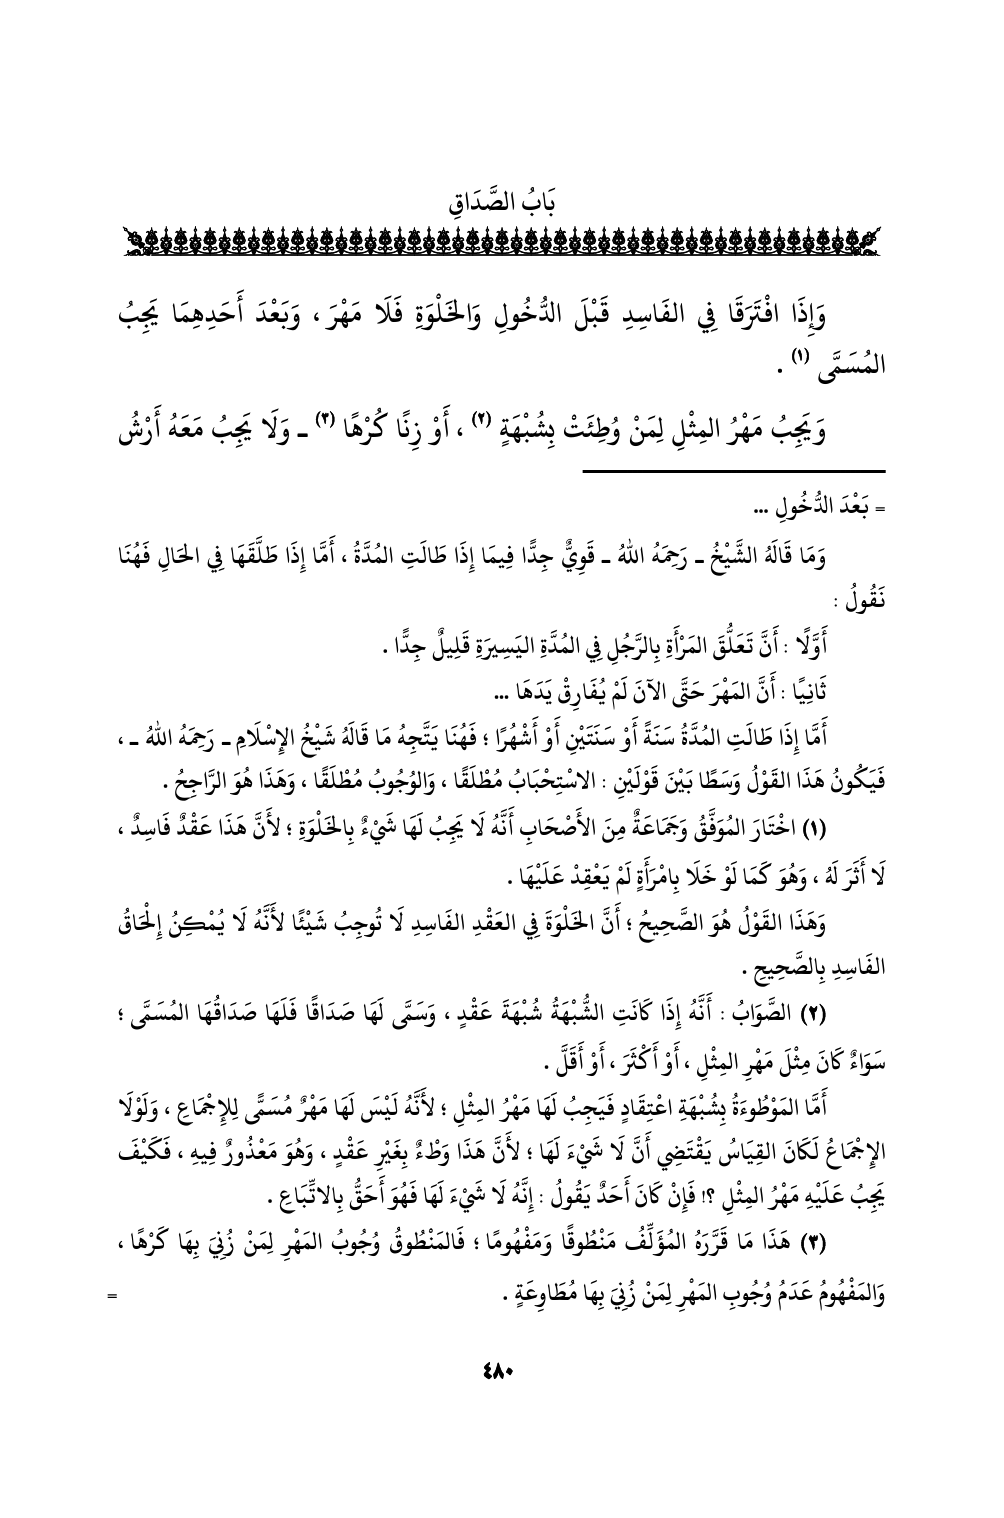 بَابُ الصَّدَاقِ
وَإِذَا افْتَرَقَا فِي الفَاسِدِ قَبْلَ الدُّخُولِ وَالخَلْوَةِ فَلَا مَهْرَ ، وَبَعْدَ أَحَدِهِمَا يَجِبُ
المُسَمَّى (١) .
وَيَجِبُ مَهْرُ المِثْلِ لِمَنْ وُطِئَتْ بِشُبْهَةٍ (٢) ، أَوْ زِنًا كُرْهًا (٣) ـ وَلَا يَجِبُ مَعَهُ أَرْشُ
= بَعْدَ الدُّخُولِ ...
وَمَا قَالَهُ الشَّيْخُ ـ رَحِمَهُ اللهُ ـ قَوِيٌّ جِدًّا فِيمَا إِذَا طَالَتِ المُدَّةُ ، أَمَّا إِذَا طَلَّقَهَا فِي الحَالِ فَهُنَا
نَقُولُ :
أَوَّلًا : أَنَّ تَعَلُّقَ المَرْأَةِ بِالرَّجُلِ فِي المُدَّةِ اليَسِيرَةِ قَلِيلٌ جِدًّا .
ثَانِيًا : أَنَّ المَهْرَ حَتَّى الآنَ لَمْ يُفَارِقْ يَدَهَا ...
أَمَّا إِذَا طَالَتِ المُدَّةُ سَنَةً أَوْ سَنَتَيْنِ أَوْ أَشْهُرًا ؛ فَهُنَا يَتَّجِهُ مَا قَالَهُ شَيْخُ الإِسْلَامِ ـ رَحِمَهُ اللهُ ـ ،
فَيَكُونُ هَذَا القَوْلُ وَسَطًا بَيْنَ قَوْلَيْنِ : الاسْتِحْبَابُ مُطْلَقًا ، وَالوُجُوبُ مُطْلَقًا ، وَهَذَا هُوَ الرَّاجِحُ .
(١) اخْتَارَ المُوَفَّقُ وَجَمَاعَةٌ مِنَ الأَصْحَابِ أَنَّهُ لَا يَجِبُ لَهَا شَيْءٌ بِالخَلْوَةِ ؛ لأَنَّ هَذَا عَقْدٌ فَاسِدٌ ،
لَا أَثَرَ لَهُ ، وَهُوَ كَمَا لَوْ خَلَا بِامْرَأَةٍ لَمْ يَعْقِدْ عَلَيْهَا .
وَهَذَا القَوْلُ هُوَ الصَّحِيحُ ؛ أَنَّ الخَلْوَةَ فِي العَقْدِ الفَاسِدِ لَا تُوجِبُ شَيْئًا لأَنَّهُ لَا يُمْكِنُ إِلْحَاقُ
الفَاسِدِ بِالصَّحِيحِ .
(٢) الصَّوَابُ : أَنَّهُ إِذَا كَانَتِ الشُّبْهَةُ شُبْهَةَ عَقْدٍ ، وَسَمَّى لَهَا صَدَاقًا فَلَهَا صَدَاقُهَا المُسَمَّى ؛
سَوَاءٌ كَانَ مِثْلَ مَهْرِ المِثْلِ ، أَوْ أَكْثَرَ ، أَوْ أَقَلَّ .
أَمَّا المَوْطُوءَةُ بِشُبْهَةِ اعْتِقَادٍ فَيَجِبُ لَهَا مَهْرُ المِثْلِ ؛ لأَنَّهُ لَيْسَ لَهَا مَهْرٌ مُسَمًّى لِلإِجْمَاعِ ، وَلَوْلَا
الإِجْمَاعُ لَكَانَ القِيَاسُ يَقْتَضِي أَنَّ لَا شَيْءَ لَهَا ؛ لأَنَّ هَذَا وَطْءٌ بِغَيْرِ عَقْدٍ ، وَهُوَ مَعْذُورٌ فِيهِ ، فَكَيْفَ
يَجِبُ عَلَيْهِ مَهْرُ المِثْلِ ؟! فَإِنْ كَانَ أَحَدٌ يَقُولُ : إِنَّهُ لَا شَيْءَ لَهَا فَهُوَ أَحَقُّ بِالاتِّبَاعِ .
(٣) هَذَا مَا قَرَّرَهُ المُؤَلِّفُ مَنْطُوقًا وَمَفْهُومًا ؛ فَالمَنْطُوقُ وُجُوبُ المَهْرِ لِمَنْ زُنِيَ بِهَا كَرْهًا ،
وَالمَفْهُومُ عَدَمُ وُجُوبِ المَهْرِ لِمَنْ زُنِيَ بِهَا مُطَاوِعَةٍ . =
٤٨٠